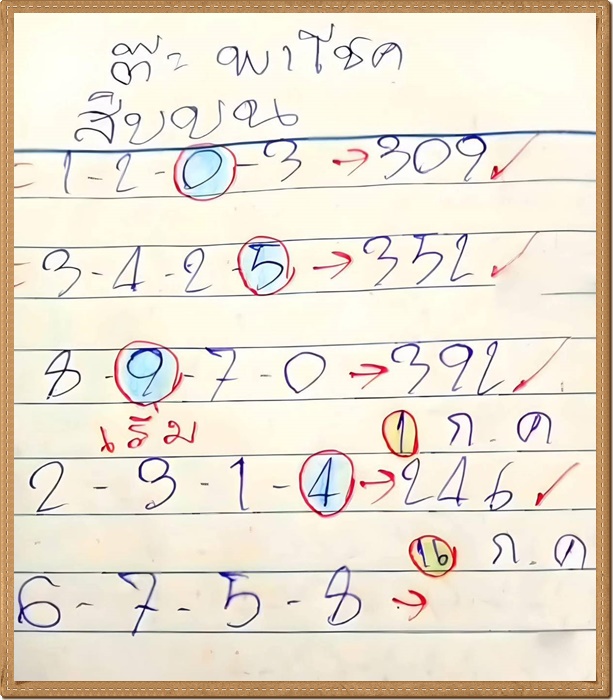 ต๊ะ พาโชค
สิบบน
= 1-2-0-3 → 309 ✓
= 3-4-2-5 → 352 ✓
8-9-7-0 → 392 ✓
เริ่ม 1 ก.ค
2-3-1-4 → 246 ✓
16 ก.ค
6-7-5-8 →